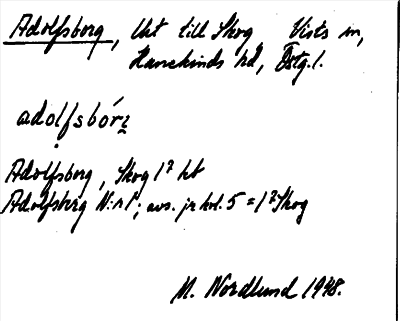 Adolfsborg, Uht till Skog Vists sn,
Hanekinds hd, Östg.l.
adolfsbórz
Adolfsborg, Skog 1? ht
Adolfsberg N:o 1; avs. jr kol. 5 = 1? Skog
M. Nordlund 1948.